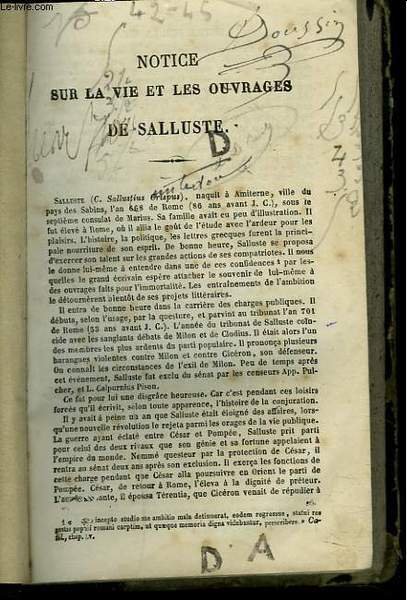 Le-livre.com
42-45
Doussin
NOTICE
SUR LA VIE ET LES OUVRAGES
DE SALLUSTE.
D
SALLUSTE (C. Sallustius Crispus), naquit à Amiterne, ville du
pays des Sabins, l'an 668 de Rome (86 ans avant J. C.), sous le
septième consulat de Marius. Sa famille avait eu peu d'illustration. Il
fut élevé à Rome, où il allia le goût de l'étude avec l'ardeur pour les
plaisirs. L'histoire, la politique, les lettres grecques furent la princi-
pale nourriture de son esprit. De bonne heure, Salluste se proposa
d'exercer son talent sur les grandes actions de ses compatriotes. Il nous
le donne lui-même à entendre dans une de ces confidences 1 par les-
quelles le grand écrivain espère attacher le souvenir de lui-même à
des ouvrages faits pour l'immortalité. Les entraînements de l'ambition
le détournèrent bientôt de ses projets littéraires.
Il entra de bonne heure dans la carrière des charges publiques. Il
débuta, selon l'usage, par la questure, et parvint au tribunat l'an 701
de Rome (53 ans avant J. C.). L'année du tribunat de Salluste coïn-
cide avec les sanglants débats de Milon et de Clodius. Il était alors l'un
des membres les plus ardents du parti populaire. Il prononça plusieurs
harangues violentes contre Milon et contre Cicéron, son défenseur.
On connaît les circonstances de l'exil de Milon. Peu de temps après
cet événement, Salluste fut exclu du sénat par les censeurs App. Pul-
cher, et L. Calpurnius Pison.
Ce fut pour lui une disgrâce heureuse. Car c'est pendant ces loisirs
forcés qu'il écrivit, selon toute apparence, l'histoire de la conjuration.
Il y avait à peine un an que Salluste était éloigné des affaires, lors-
qu'une nouvelle révolution le rejeta parmi les orages de la vie publique.
La guerre ayant éclaté entre César et Pompée, Salluste prit parti
pour celui des deux rivaux que son génie et sa fortune appelaient à
l'empire du monde. Nommé questeur par la protection de César, il
rentra au sénat deux ans après son exclusion. Il exerça les fonctions de
cette charge pendant que César alla poursuivre en Orient le parti de
Pompée. César, de retour à Rome, l'éleva à la dignité de préteur.
ante, il épousa Térentia, que Cicéron venait de répudier à
incepto studio me ambitio mala detinuerat, eodem regressus, statui res
gestas populi romani carptim, ut quæque memoria digna videbantur, perscribere. » Ca-
til., chap. iv.
D A